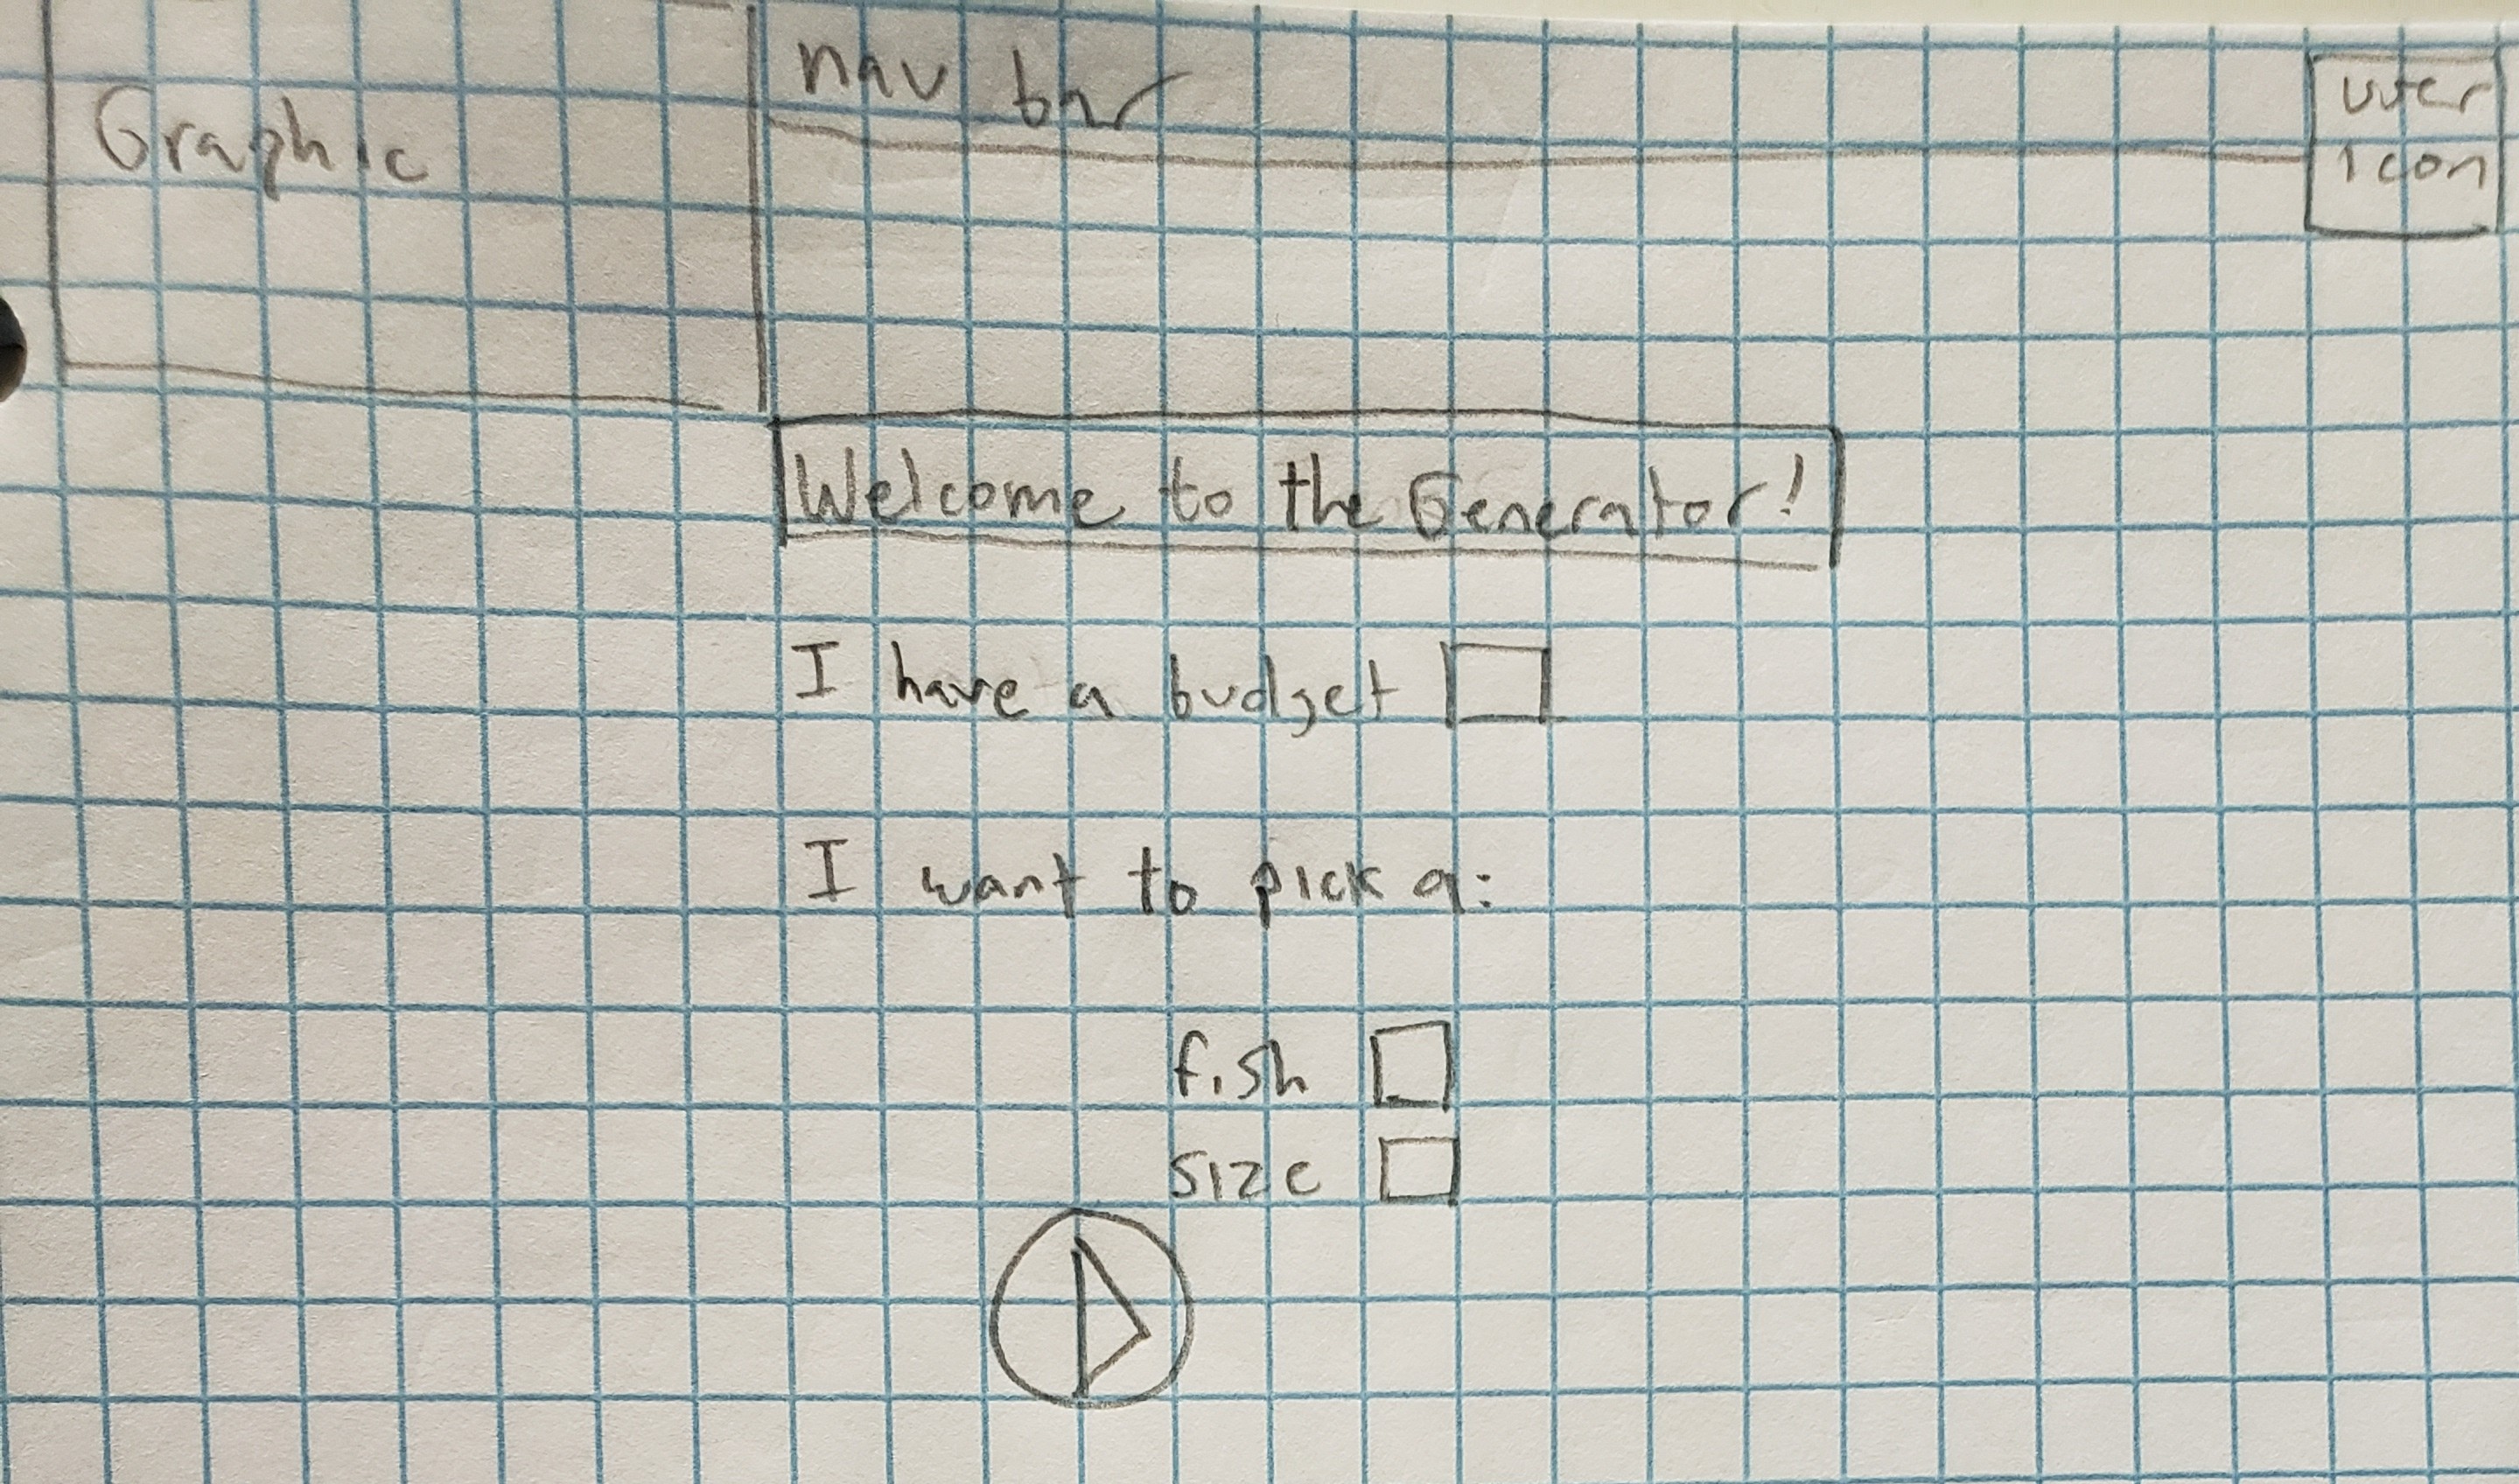 Graphic
nav bar
user
icon
Welcome to the Generator!
I have a budget
I want to pick a:
fish
size